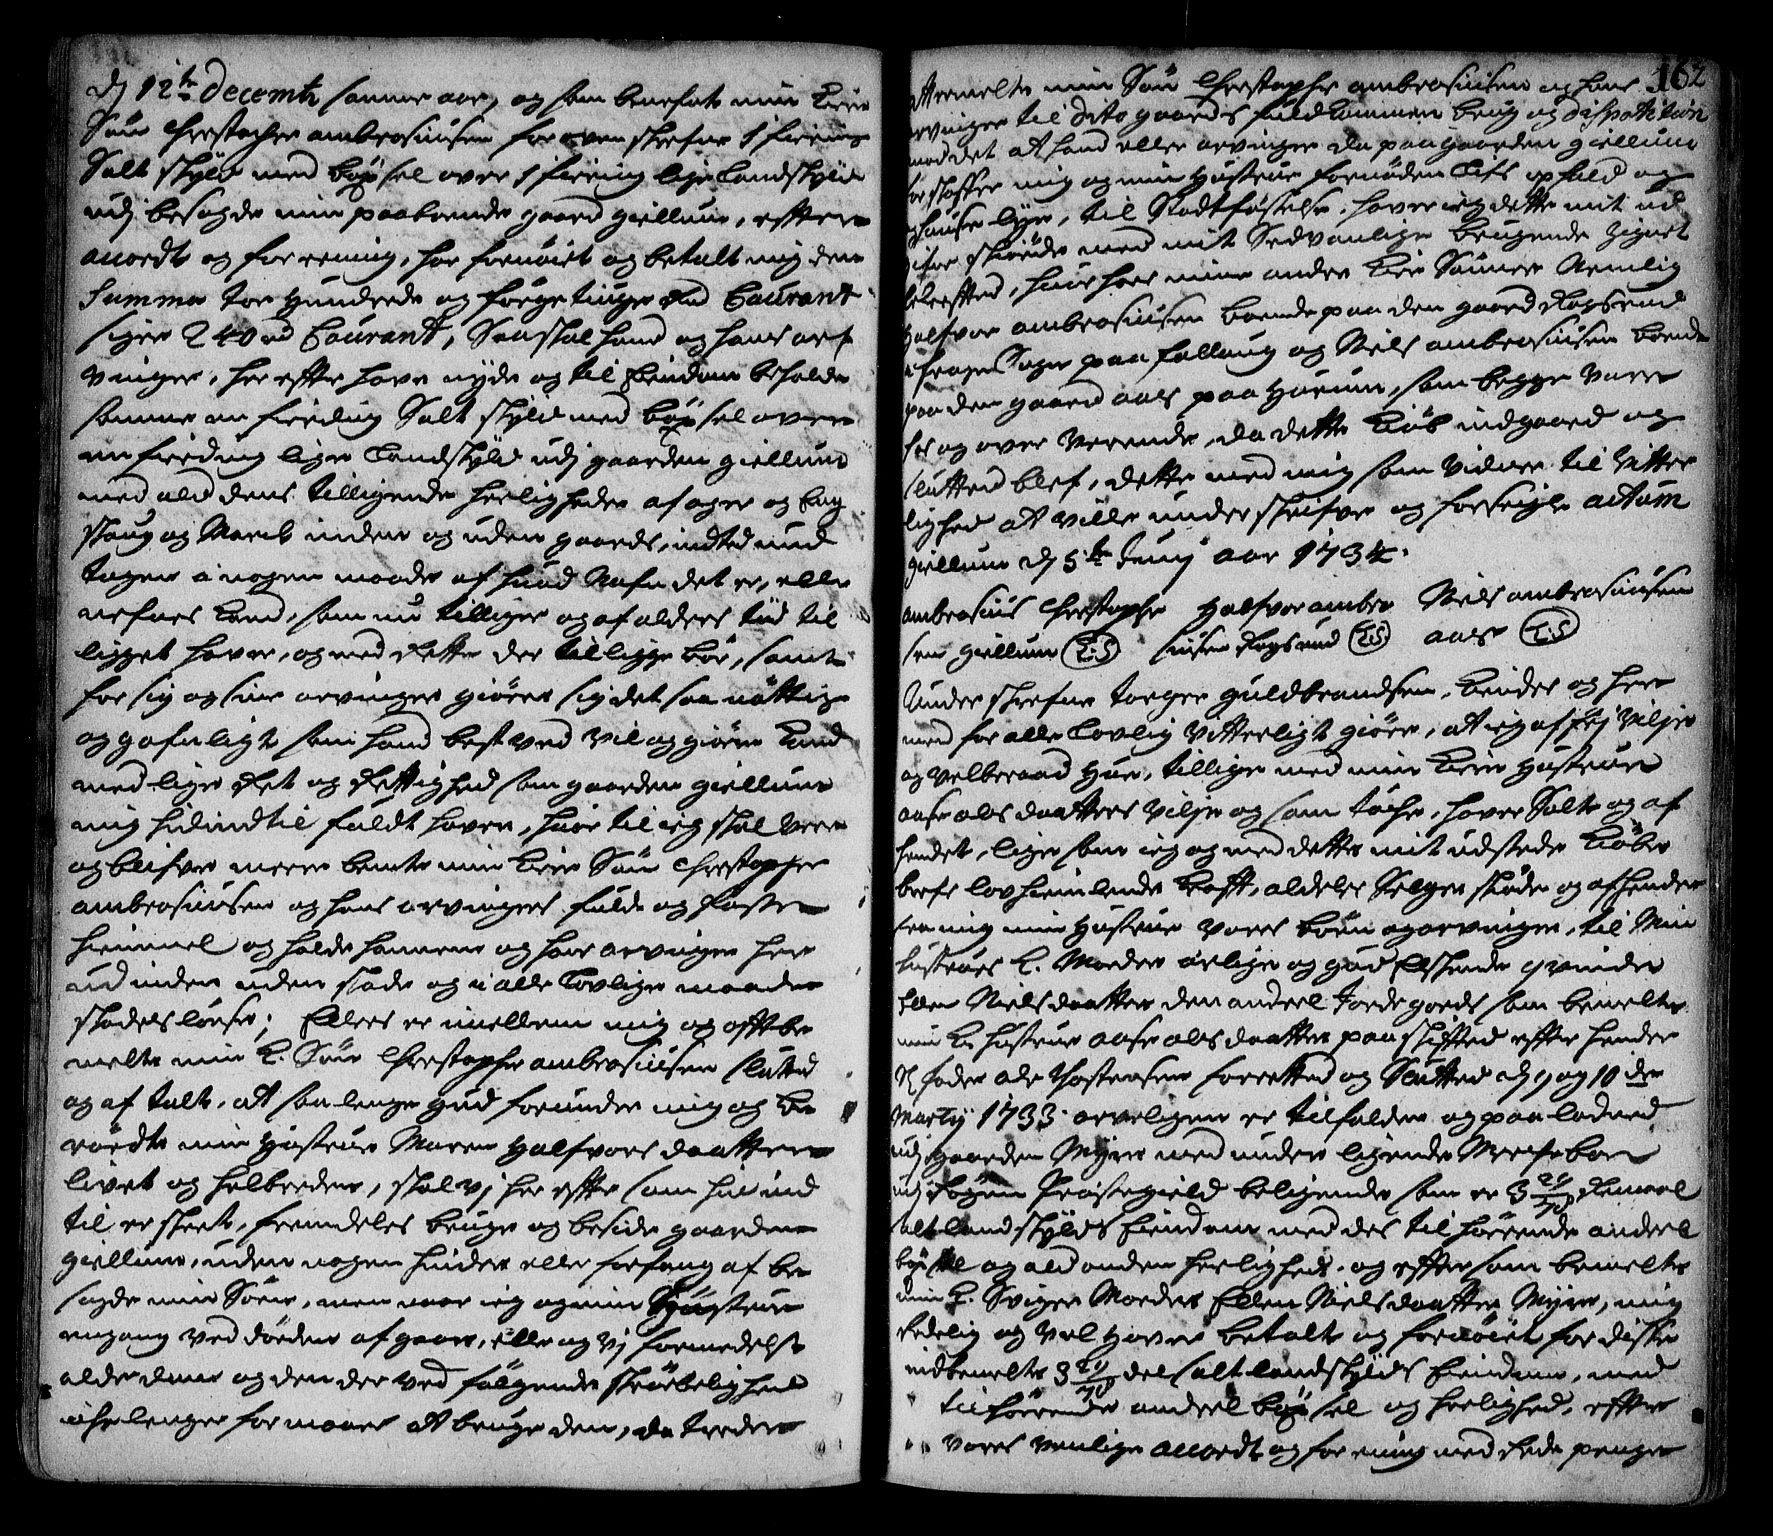 dj 12te Decembr samme aar, og som benefnte min kiere
Søn Christopher ambrosiusen for ovenskrefne 1 fiering
Salt skyld med bøxsel over 1 fiering lige Landskyld
udj besagde min paaboende gaard giellum, effter
accordt og forrening, har fornøiet og betalt mig den
Summa toe Hundrede og førgetiuge rd Courant
siger 240 rd Courant, Saa skal hand og hans arf
vinger, her effter have nyde og til Eiendom beholde
samme en fierding Salt skyld med bøxsel over
en fierding lige Landskyld udj gaarden giellum
med ald dens tilligende herligheder af ager og Eng
skoug og Marck inden og uden gaards, indted und
tagen i nogen maade af huad Nafn det er, eller
nefnes kand, som nu tilliger og af alders tiid til
ligget haver, og med Rette der tilligge bør, samt
for sig og sine arvinger giøre sig det saa nøttig
og gafnligt som hand best ved vil og giøre kand
med lige Ret og Rettighed som gaarden giellum
mig hidindtil fuldt haver, huor til ieg skal være
og blifve meere bemte min kiere Søn Christopher
ambrosiusen og hans arvingers fulde og faste
hiemmel og holde hannem og hans arvinger her
ud inden uden skade og i alle Lovlige maader
skadesløese; Ellers er imellem mig og offtbe
melte min k. Søn Christopher ambrosiusen sluttet
og af talt, at saa lenge gud forunder mig og be
rørdte min Hustrue Maren Halfvors daatter
livet og helbreden, skal vj her effter som hid ind
til er skeet, fremdeles bruge og beside gaarden
giellum, uden nogen hinder eller forfang af be
sagde min Søn, men naar ieg og min Hustrue
engang ved døden afgaar, eller og vj formedelst
alderdom og den der ved følgende skrøbelighed
iche lenger formaar at bruge den, da treder
162
offtemelte min Søn Christopher ambrosiusen og hans
arvinger til dito gaards fuldkommen brug og disposition
mod det at hand eller arvinger da paa gaarden giellum
forskaffer mig og min Hustrue fornøden Lifs ophold og
huuse lye, til Stadtfæstelse, haver ieg dette mit ud
gifne skiøde med mit Sedvanlige brugende Zignet
bekrefftet, huor hos mine andre kiere Sønner Nemlig
Halfvor ambrosiusen boende paa den gaard Rogsrud
i Hougs Sogn paa folloug og Niels ambrosiusen boende
paa den gaard aas paa Hurum, som begge vare
hos og over værende, da dette kiøb indgaaed og
sluttet blef, dette med mig som vidner til vitter
lighed at ville underskrifve og forseigle actum
giellum dj 5te Junj aar 1734.
ambrosius Christopher Halfvor ambro Niels ambrosiusen
sen giellum (L:S) siusen Rogsrud (L:S) aas (L:S)
Underskrefne Torger guldbrandsen, kiender og her
med for alle Lovlig vitterligt giøre, at ieg af frj vilje
og velberaad Hue, tillige med min kiere Hustrue
aase olsdaatters vilje og sam tøche, haver Solt og af
hendet, lige som ieg og med dette mit udstede kiøbe
bref lovhiemlende krafft, aldeles Selger skøder og afhender
fra mig min Hustrue vores børn og arvinger, til Min
Hustrues k. Moeder ærlige og gud Elskende qvinde
Ellen Nielsdaatter den andeel Jorde gods som bemelte
min k. Hustrue aase olsdaatter paa skifftet effter hendes
S: fader ole Thostensen forrettet og Sluttet dj 9 og 10 de
Martij 1733 arveligen er tilfalden og paa lodned
udj gaarden Myre med under ligende
udj Røgen Præstegield beligende som er 3 21/70 Remeel
salt landskylds Eiendom med des tilhørende andeel
bøxsel og ald anden herlighed, og effter som bemelte
min k. Sviger Moeder Ellen Nielsdaatter Myre, mig
Redelig og vel haver betalt og fornøiet for disse
indbemelte 3 21/70 deel salt landskylds Eiendom, med
tilhørende andeel bøxsel og herlighed, effter
vores venlige accordt og forening med Rede penger